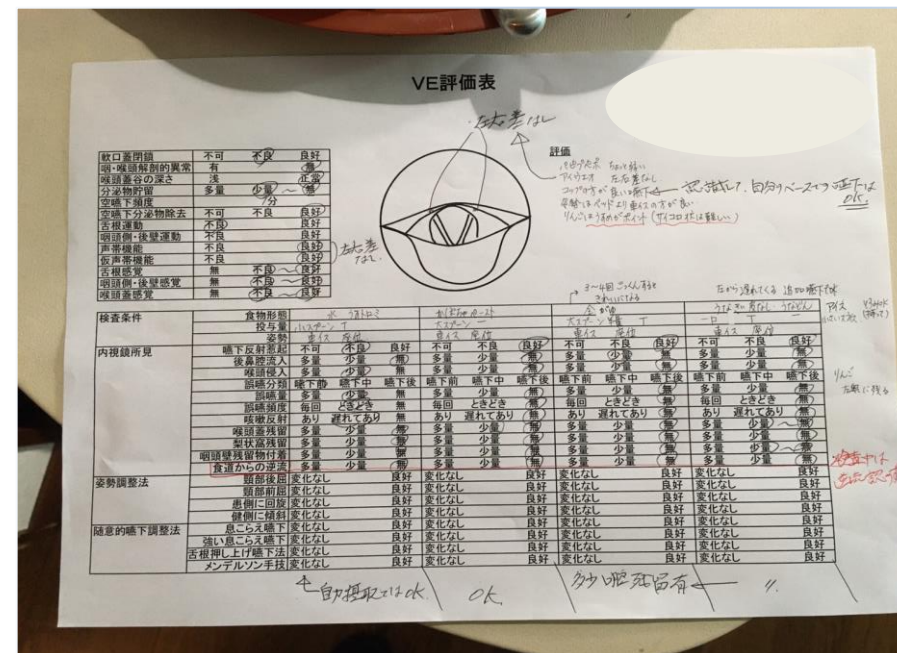 VE評価表
左右差なし
評価
アイウエオ 左右差なし
コップの方が良い嚥下 ← 認識して、自分のペースでの嚥下は OK.
姿勢はベッドより車イスの方が良い
りんごはうすめがポイント(サイコロ状は難しい)
軟口蓋閉鎖 不可 不良 良好
咽・喉頭解剖的異常 有 無
喉頭蓋谷の深さ 浅 正常
分泌物貯留 多量 少量 ~ 無
空嚥下頻度 /分
空嚥下分泌物除去 不可 不良 良好
舌根運動 不良 良好
咽頭側・後壁運動 不良 良好
声帯機能 不良 良好
仮声帯機能 不良 良好
左右差なし.
舌根感覚 無 不良 ~ 良好
咽頭側・後壁感覚 無 不良 ~ 良好
喉頭蓋感覚 無 不良 ~ 良好
3~4回ごっくんすると
きれいになる
検査条件 食物形態 水 うすトロミ 全がゆ アイス
投与量 小スプーン 大スプーン 大スプーン 一口
姿勢 車イス 座位 車イス 座位 車イス 座位 車イス 座位
内視鏡所見 嚥下反射惹起 不可 不良 良好 不可 不良 良好 不可 不良 良好 不可 不良 良好
後鼻腔流入 多量 少量 無 多量 少量 無 多量 少量 無 多量 少量 無
喉頭侵入 多量 少量 無 多量 少量 無 多量 少量 無 多量 少量 無
誤嚥分類 嚥下前 嚥下中 嚥下後 嚥下前 嚥下中 嚥下後 嚥下前 嚥下中 嚥下後 嚥下前 嚥下中 嚥下後
りんご
誤嚥量 多量 少量 無 多量 少量 無 多量 少量 無 多量 少量 無
誤嚥頻度 毎回 ときどき 無 毎回 ときどき 無 毎回 ときどき 無 毎回 ときどき 無
咳嗽反射 あり 遅れてあり 無 あり 遅れてあり 無 あり 遅れてあり 無 あり 遅れてあり 無
喉頭蓋残留 多量 少量 無 多量 少量 無 多量 少量 無 多量 少量 ~ 無
梨状窩残留 多量 少量 無 多量 少量 無 多量 少量 無 多量 少量 無
咽頭壁残留物付着 多量 少量 無 多量 少量 無 多量 少量 無 多量 少量 ~ 無
食道からの逆流 多量 少量 無 多量 少量 無 多量 少量 無 多量 少量 無
検査中は
姿勢調整法 頸部後屈 変化なし 良好 変化なし 良好 変化なし 良好 変化なし 良好
頸部前屈 変化なし 良好 変化なし 良好 変化なし 良好 変化なし 良好
患側に回旋 変化なし 良好 変化なし 良好 変化なし 良好 変化なし 良好
健側に傾斜 変化なし 良好 変化なし 良好 変化なし 良好 変化なし 良好
随意的嚥下調整法 息こらえ嚥下 変化なし 良好 変化なし 良好 変化なし 良好 変化なし 良好
強い息こらえ嚥下 変化なし 良好 変化なし 良好 変化なし 良好 変化なし 良好
舌根押し上げ嚥下法 変化なし 良好 変化なし 良好 変化なし 良好 変化なし 良好
メンデルソン手技 変化なし 良好 変化なし 良好 変化なし 良好 変化なし 良好
自力摂取では ok. OK. 多少咽頭残留有 ← 〃